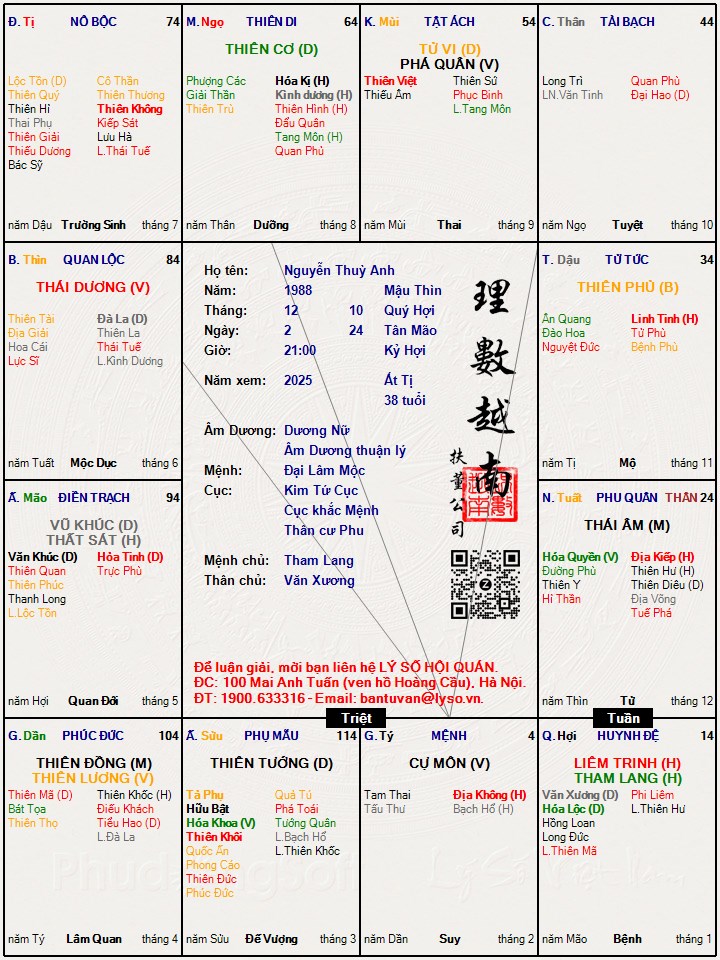 Đ. Tị NÔ BỘC 74
LỘc Tồn (D) Cô Thần
Thiên Quý Thiên Thương
Thiên Hỉ Thiên Không
Thai Phụ Kiếp Sát
Thiên Giải Lưu Hà
Thiếu Dương L.Thái Tuế
Bác Sỹ
năm Dậu Trường Sinh tháng 7
M. Ngọ THIÊN DI 64
THIÊN CƠ (D)
Phượng Các Hóa Kị (H)
Giải Thần Kình dương (H)
Thiên Trù Thiên Hình (H)
Đẩu Quân
Tang Môn (H)
Quan Phủ
năm Thân Dưỡng tháng 8
K. Mùi TẬT ÁCH 54
TỬ VI (D)
PHÁ QUÂN (V)
Thiên Việt Thiên Sứ
Thiếu Âm Phục Binh
L.Tang Môn
năm Mùi Thai tháng 9
C. Thân TÀI BẠCH 44
Long Trì Quan Phù
LN.Văn Tinh Đại Hao (D)
năm Ngọ Tuyệt tháng 10
B. Thìn QUAN LỘC 84
THÁI DƯƠNG (V)
Thiên Tài Đà La (D)
Địa Giải Thiên La
Hoa Cái Thái Tuế
Lực Sĩ L.Kình Dương
năm Tuất Mộc Dục tháng 6
Họ tên: Nguyễn Thuỳ Anh
Năm: 1988 Mậu Thìn
Tháng: 12 10 Quý Hợi
Ngày: 2 24 Tân Mão
Giờ: 21:00 Kỷ Hợi
Năm xem: 2025 Ất Tị
38 tuổi
Âm Dương: Dương Nữ
Âm Dương thuận lý
Mệnh: Đại Lâm Mộc
Cục: Kim Tứ Cục
Cục khắc Mệnh
Thân cư Phu
Mệnh chủ: Tham Lang
Thân chủ: Văn Xương
理數越南
扶董公司
Để luận giải, mời bạn liên hệ LÝ SỐ HỘI QUÁN.
ĐC: 100 Mai Anh Tuấn (ven hồ Hoàng Cầu), Hà Nội.
ĐT: 1900.633316 - Email: bantuvan@lyso.vn.
T. Dậu TỬ TỨC 34
THIÊN PHỦ (B)
Ân Quang Linh Tinh (H)
Đào Hoa Tử Phù
Nguyệt Đức Bệnh Phù
năm Tị Mộ tháng 11
Ấ. Mão ĐIỀN TRẠCH 94
VŨ KHÚC (D)
THẤT SÁT (H)
Văn Khúc (D) Hỏa Tinh (D)
Thiên Quan Trực Phù
Thiên Phúc
Thanh Long
L.Lộc Tồn
năm Hợi Quan Đới tháng 5
N. Tuất PHU QUÂN THÂN 24
THÁI ÂM (M)
Hóa Quyền (V) Địa Kiếp (H)
Đường Phù Thiên Hư (H)
Thiên Y Thiên Diêu (D)
Hỉ Thần Địa Võng
Tuế Phá
năm Thìn Tử tháng 12
Triệt
Tuần
G. Dần PHÚC ĐỨC 104
THIÊN ĐỒNG (M)
THIÊN LƯƠNG (V)
Thiên Mã (D) Thiên Khốc (H)
Bát Tọa Điếu Khách
Thiên Thọ Tiểu Hao (D)
L.Đà La
năm Tý Lâm Quan tháng 4
Ấ. Sửu PHỤ MẪU 114
THIÊN TƯỚNG (D)
Tả Phụ Quả Tú
Hữu Bật Phá Toái
Hóa Khoa (V) Tướng Quân
Thiên Khôi L.Bạch Hổ
Quốc Ấn L.Thiên Khốc
Phong Cáo
Thiên Đức
Phúc Đức
năm Sửu Đế Vượng tháng 3
G. Tý MỆNH 4
CỰ MÔN (V)
Tam Thai Địa Không (H)
Tấu Thư Bạch Hổ (H)
năm Dần Suy tháng 2
Q. Hợi HUYNH ĐỆ 14
LIÊM TRINH (H)
THAM LANG (H)
Văn Xương (D) Phi Liêm
Hóa Lộc (D) L.Thiên Hư
Hồng Loan
Long Đức
L.Thiên Mã
năm Mão Bệnh tháng 1